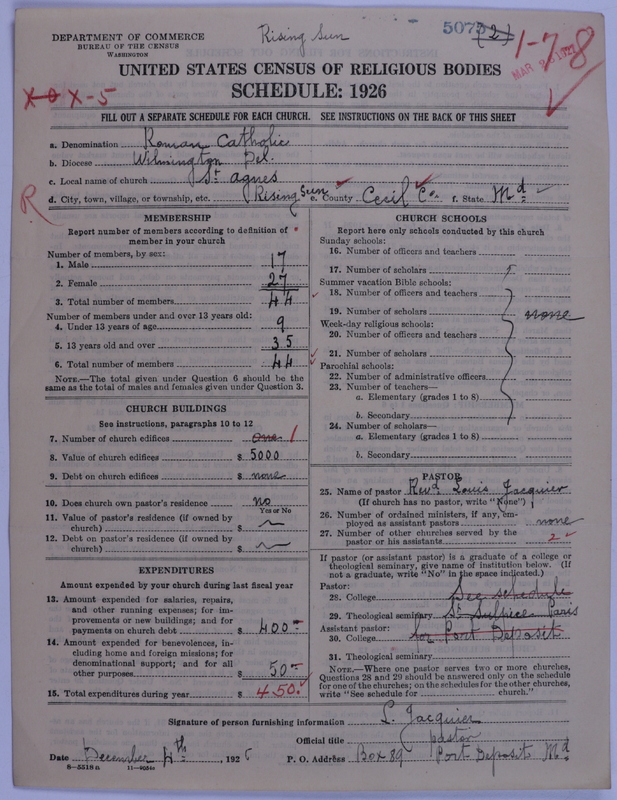 Rising Sun
5075 (2)
1-78
MAR 2
DEPARTMENT OF COMMERCE
BUREAU OF THE CENSUS
WASHINGTON
UNITED STATES CENSUS OF RELIGIOUS BODIES
SCHEDULE: 1926
X-5
FILL OUT A SEPARATE SCHEDULE FOR EACH CHURCH. SEE INSTRUCTIONS ON THE BACK OF THIS SHEET
a. Denomination Roman Catholic
b. Diocese Wilmington Del.
c. Local name of church St agnes
d. City, town, village, or township, etc. Rising Sun e. County Cecil Co. f. State Md
R
MEMBERSHIP
Report number of members according to definition of member in your church
Number of members, by sex:
1. Male 17
2. Female 27
3. Total number of members 44
Number of members under and over 13 years old:
4. Under 13 years of age 9
5. 13 years old and over 35
6. Total number of members 44
NOTE.—The total given under Question 6 should be the
same as the total of males and females given under Question 3.
CHURCH BUILDINGS
See instructions, paragraphs 10 to 12
7. Number of church edifices One 1
8. Value of church edifices $ 5000
9. Debt on church edifices $ none
10. Does church own pastor's residence no
Yes or No
11. Value of pastor's residence (if owned by
church) $
12. Debt on pastor's residence (if owned by
church) $
EXPENDITURES
Amount expended by your church during last fiscal year
13. Amount expended for salaries, repairs,
and other running expenses; for im-
provements or new buildings; and for
payments on church debt $ 400=
14. Amount expended for benevolences, in-
cluding home and foreign missions; for
denominational support; and for all
other purposes $ 50=
15. Total expenditures during year $ 450.
CHURCH SCHOOLS
Report here only schools conducted by this church
Sunday schools:
16. Number of officers and teachers
17. Number of scholars
Summer vacation Bible schools:
18. Number of officers and teachers
19. Number of scholars none
Week-day religious schools:
20. Number of officers and teachers
21. Number of scholars
Parochial schools:
22. Number of administrative officers
23. Number of teachers—
a. Elementary (grades 1 to 8)
b. Secondary
24. Number of scholars—
a. Elementary (grades 1 to 8)
b. Secondary
PASTOR
25. Name of pastor Revd Louis Jacquier
(If church has no pastor, write "None")
26. Number of ordained ministers, if any, em-
ployed as assistant pastors none
27. Number of other churches served by the
pastor or his assistants 2
If pastor (or assistant pastor) is a graduate of a college or
theological seminary, give name of institution below. (If
not a graduate, write "No" in the space indicated.)
Pastor:
28. College See schedule
29. Theological seminary St Sulpice Paris
Assistant pastor:
30. College for Port Deposit
31. Theological seminary
NOTE.—Where one pastor serves two or more churches,
Questions 28 and 29 should be answered only on the schedule
for one of the churches; on the schedules for the other churches,
write "See schedule for church."
Signature of person furnishing information L. Jacquier
Official title pastor
Date December 4th, 1926 P. O. Address Box 89 Port Deposit Md
8-5318 a